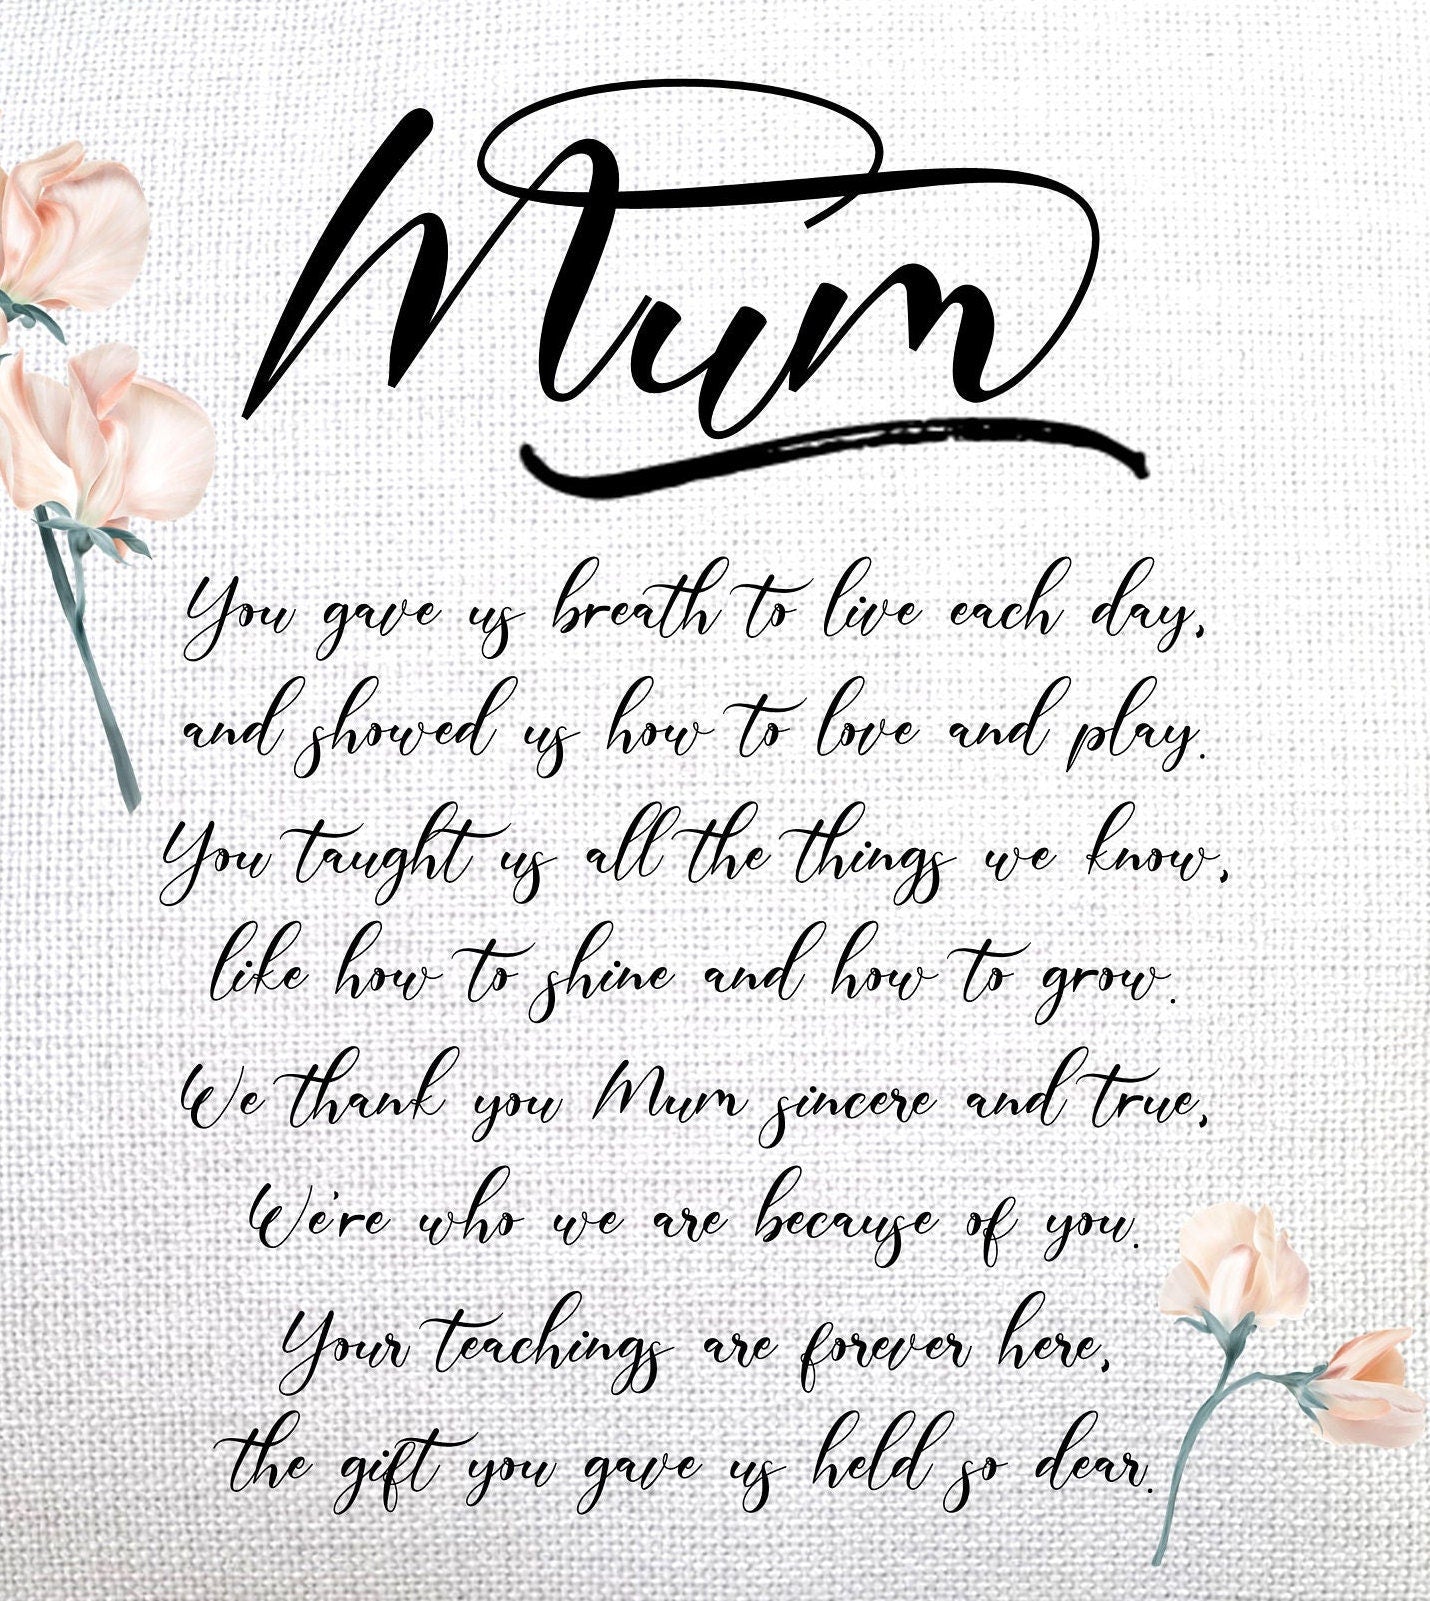 Mum
You gave us breath to live each day,
and showed us how to love and play.
You taught us all the things we know,
like how to shine and how to grow.
We thank you Mum sincere and true,
We're who we are because of you.
Your teachings are forever here,
the gift you gave us held so dear.